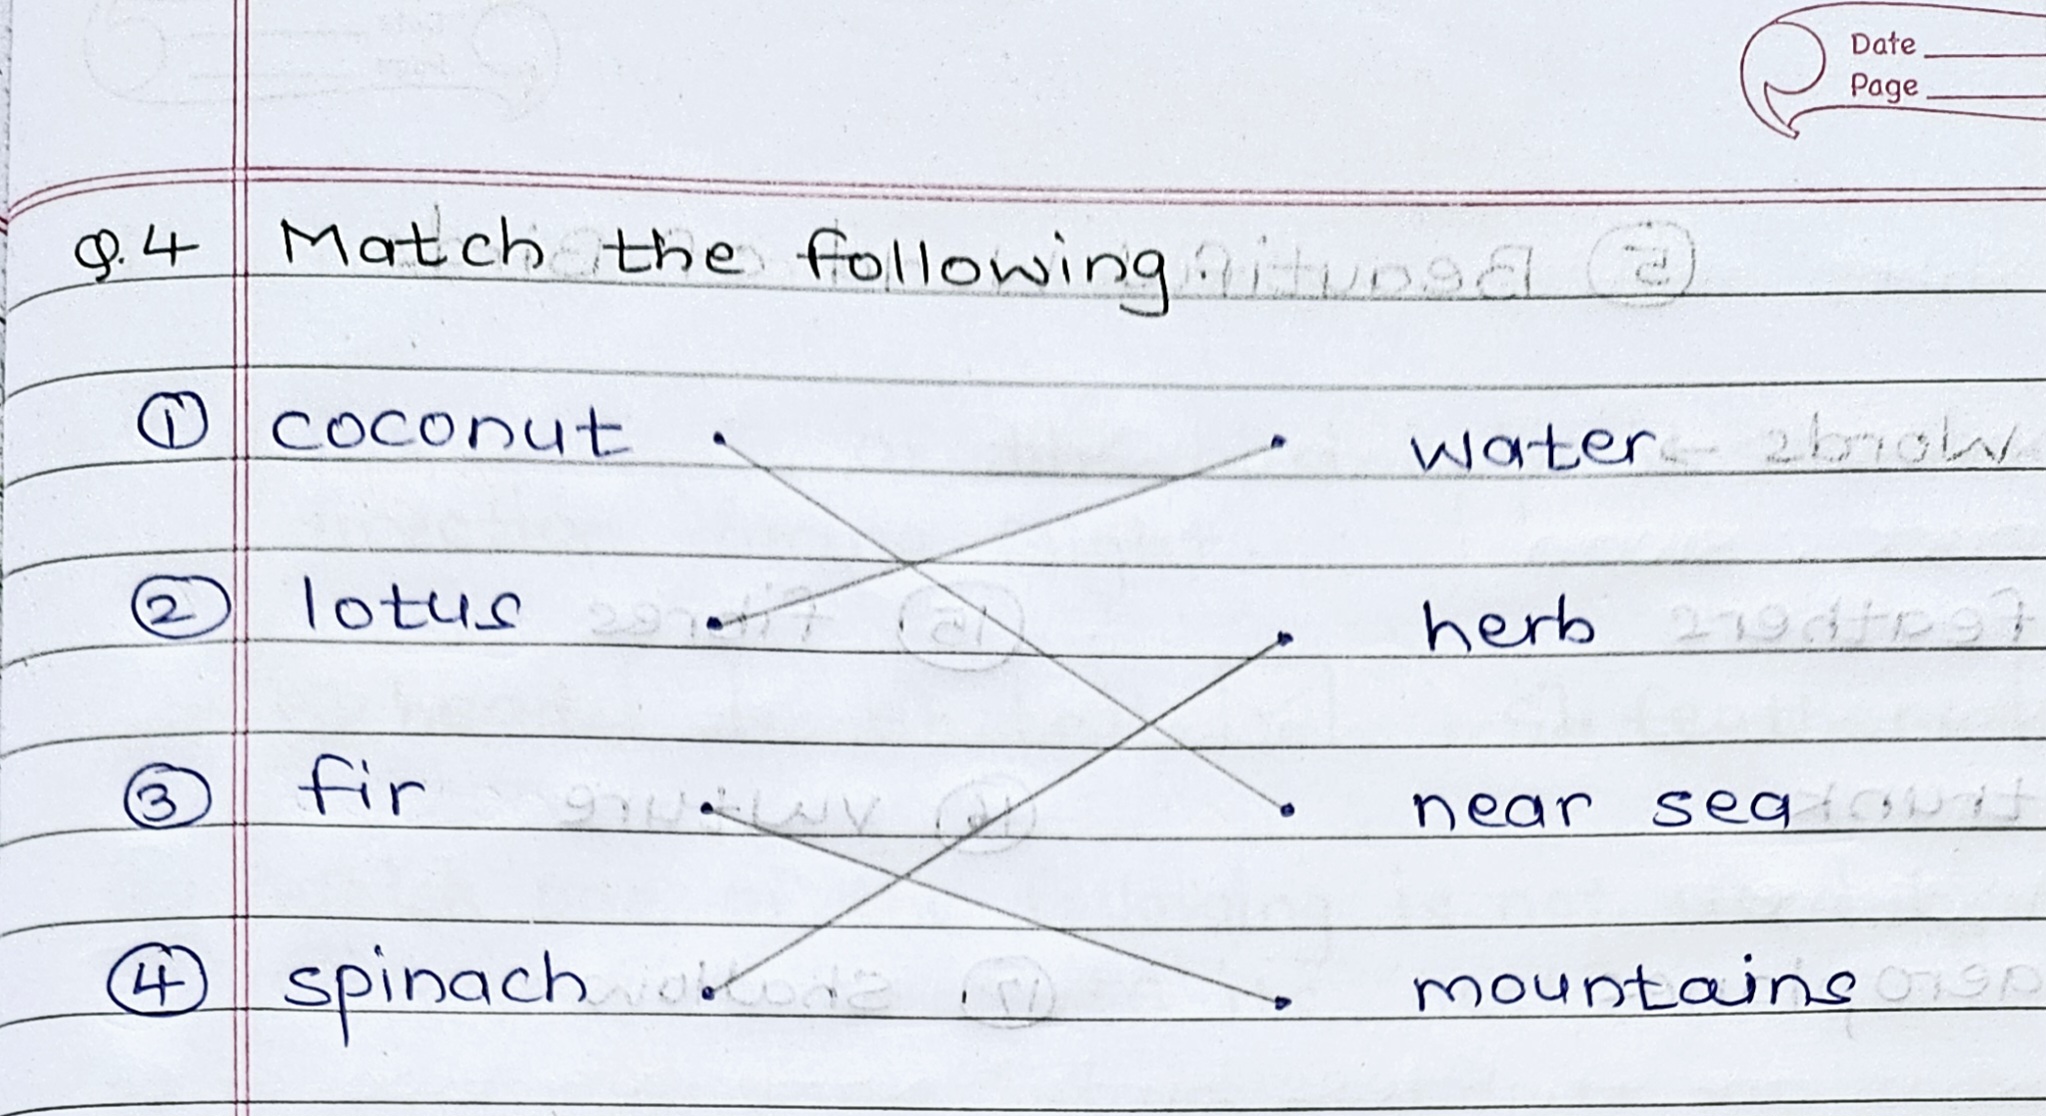 Date
Page
Q.4 Match the following.
① coconut water
② lotus herb
③ fir near sea
④ spinach mountains